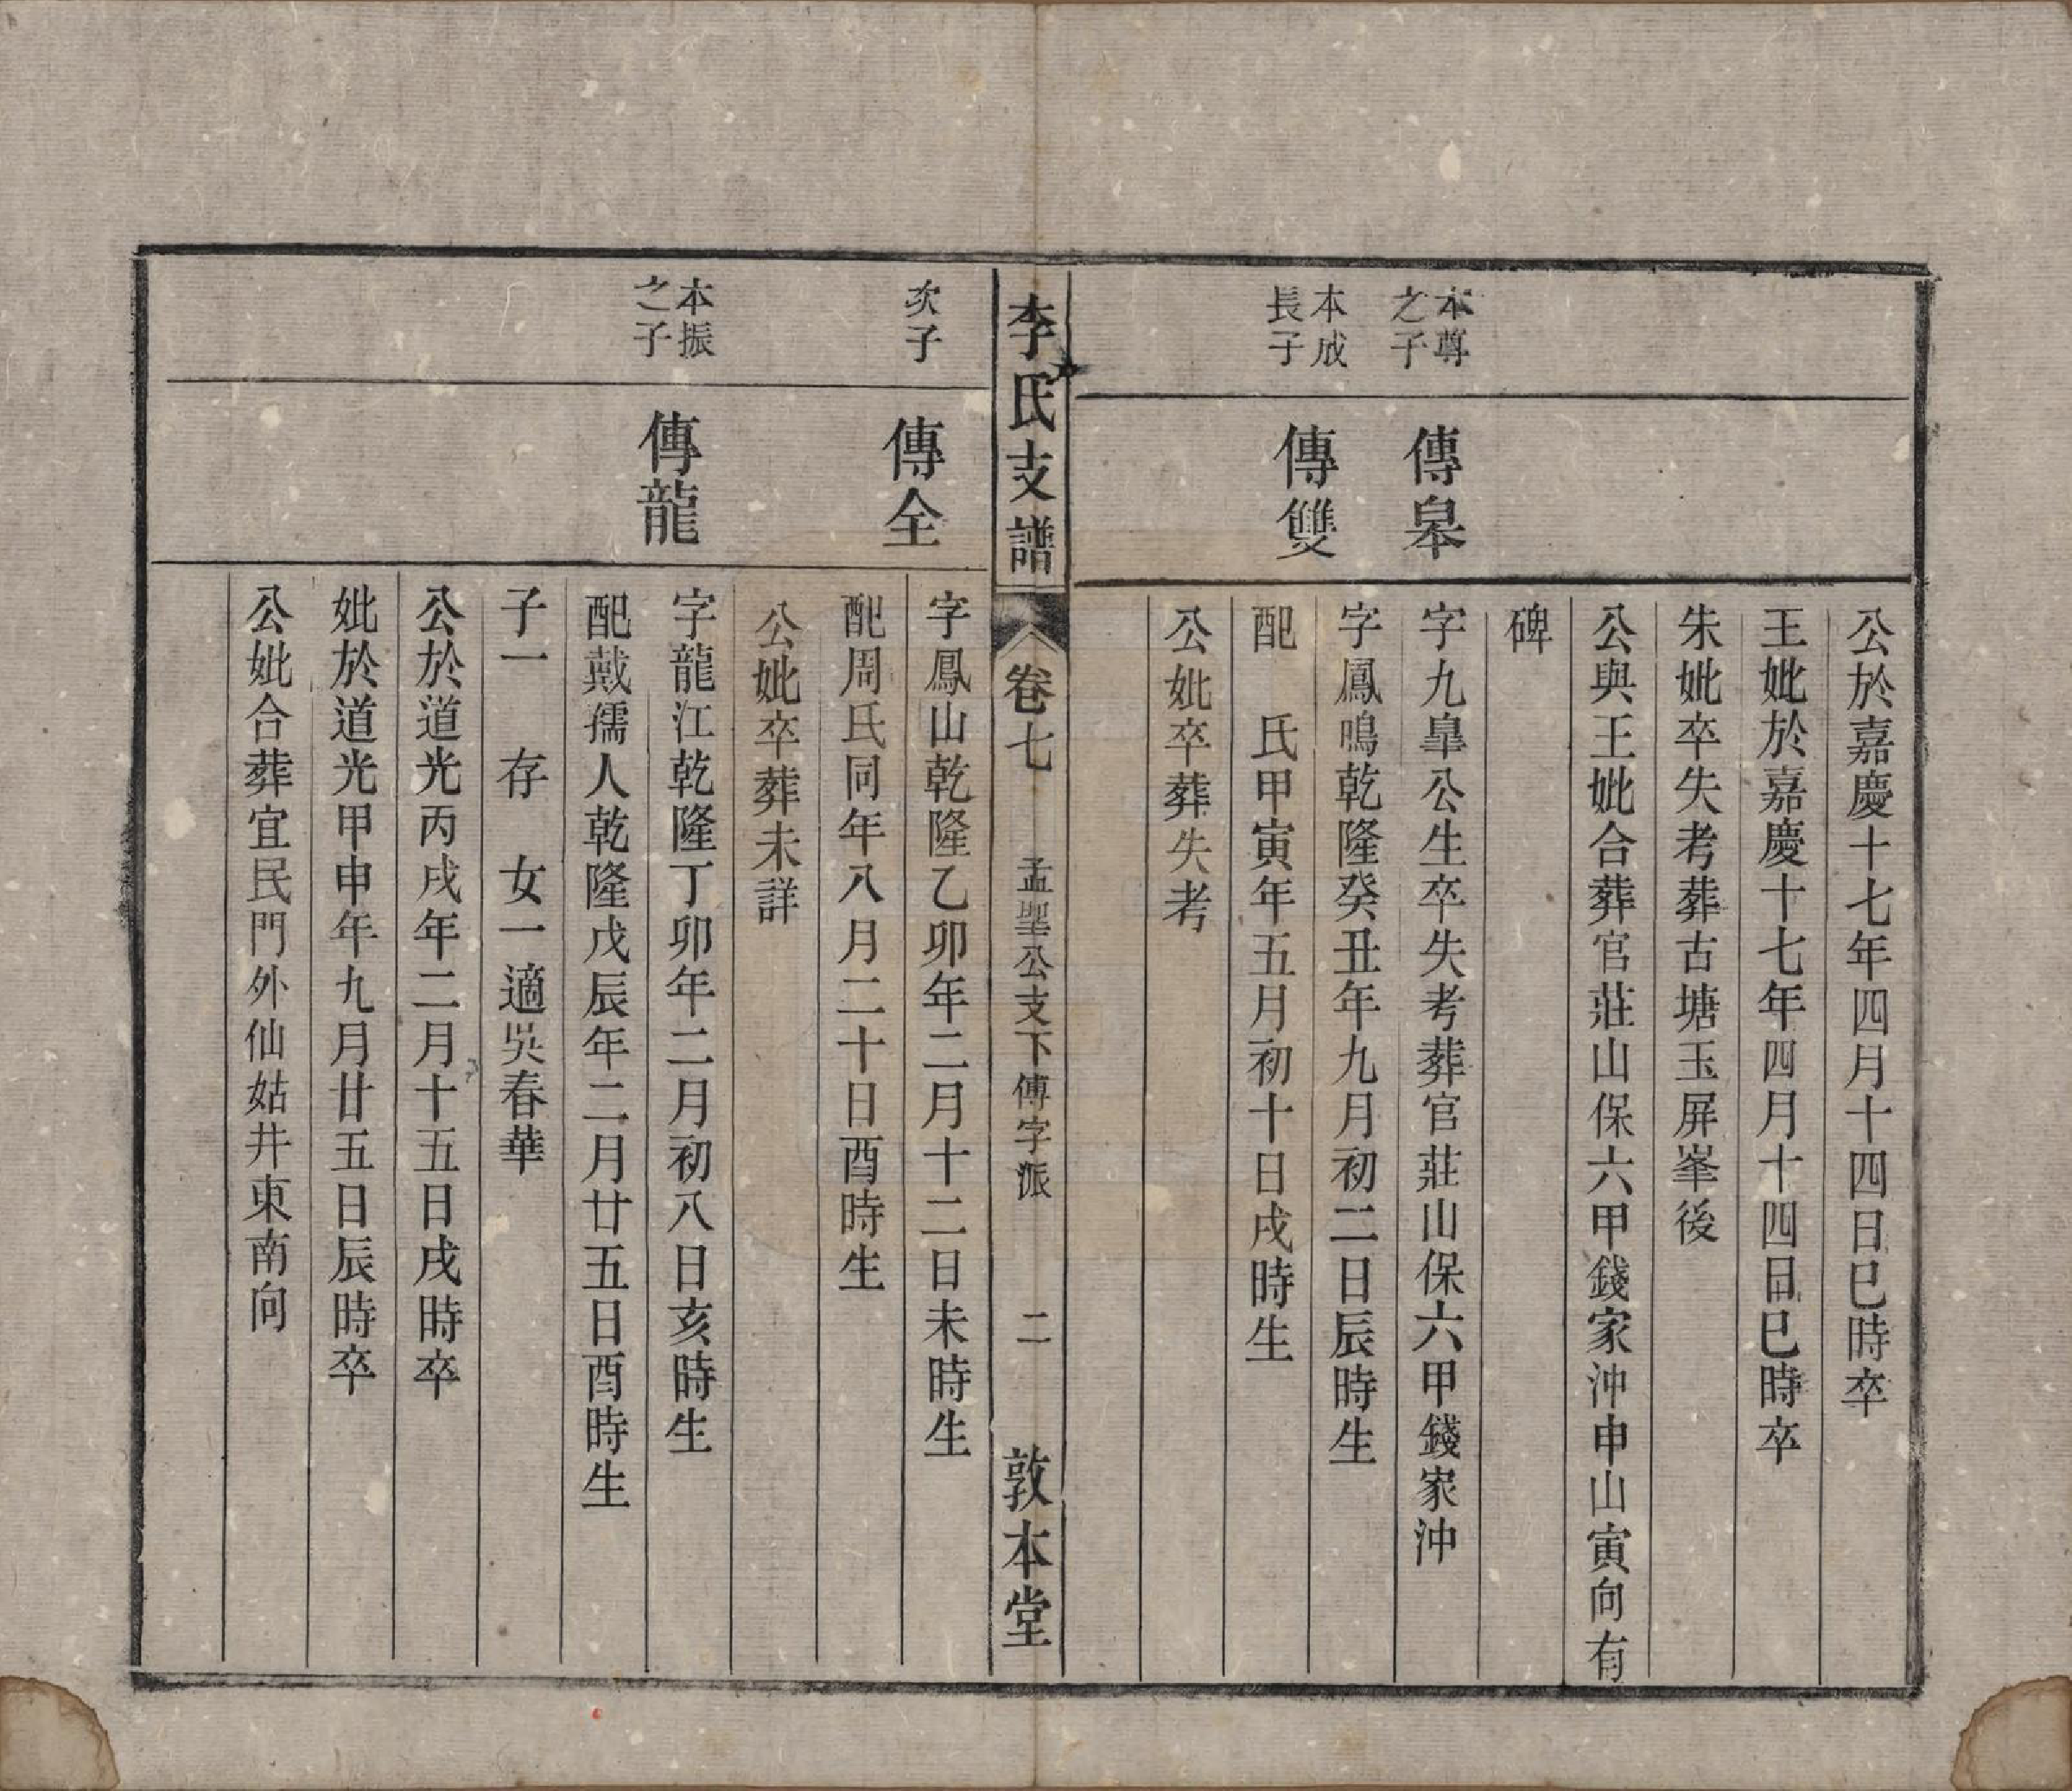 公於嘉慶十七年四月十四日巳時卒
王妣於嘉慶十七年四月十四日巳時卒
朱妣卒失考葬古塘玉屏峯後
公與王妣合葬官莊山保六甲錢家沖申山寅向有
碑
本尊
之子
傳皋
字九臯公生卒失考葬官莊山保六甲錢家沖
本成
長子
傳雙
字鳳鳴乾隆癸丑年九月初二日辰時生
配　氏甲寅年五月初十日戌時生
公妣卒葬失考
李氏支譜
卷七
孟聖公支下傳字派
二
敦本堂
次子
傳全
字鳳山乾隆乙卯年二月十二日未時生
配周氏同年八月二十日酉時生
公妣卒葬未詳
本振
之子
傳龍
字龍江乾隆丁卯年二月初八日亥時生
配戴孺人乾隆戊辰年二月廿五日酉時生
子一　存　女一適吳春華
公於道光丙戌年二月十五日戌時卒
妣於道光甲申年九月廿五日辰時卒
公妣合葬宜民門外仙姑井東南向